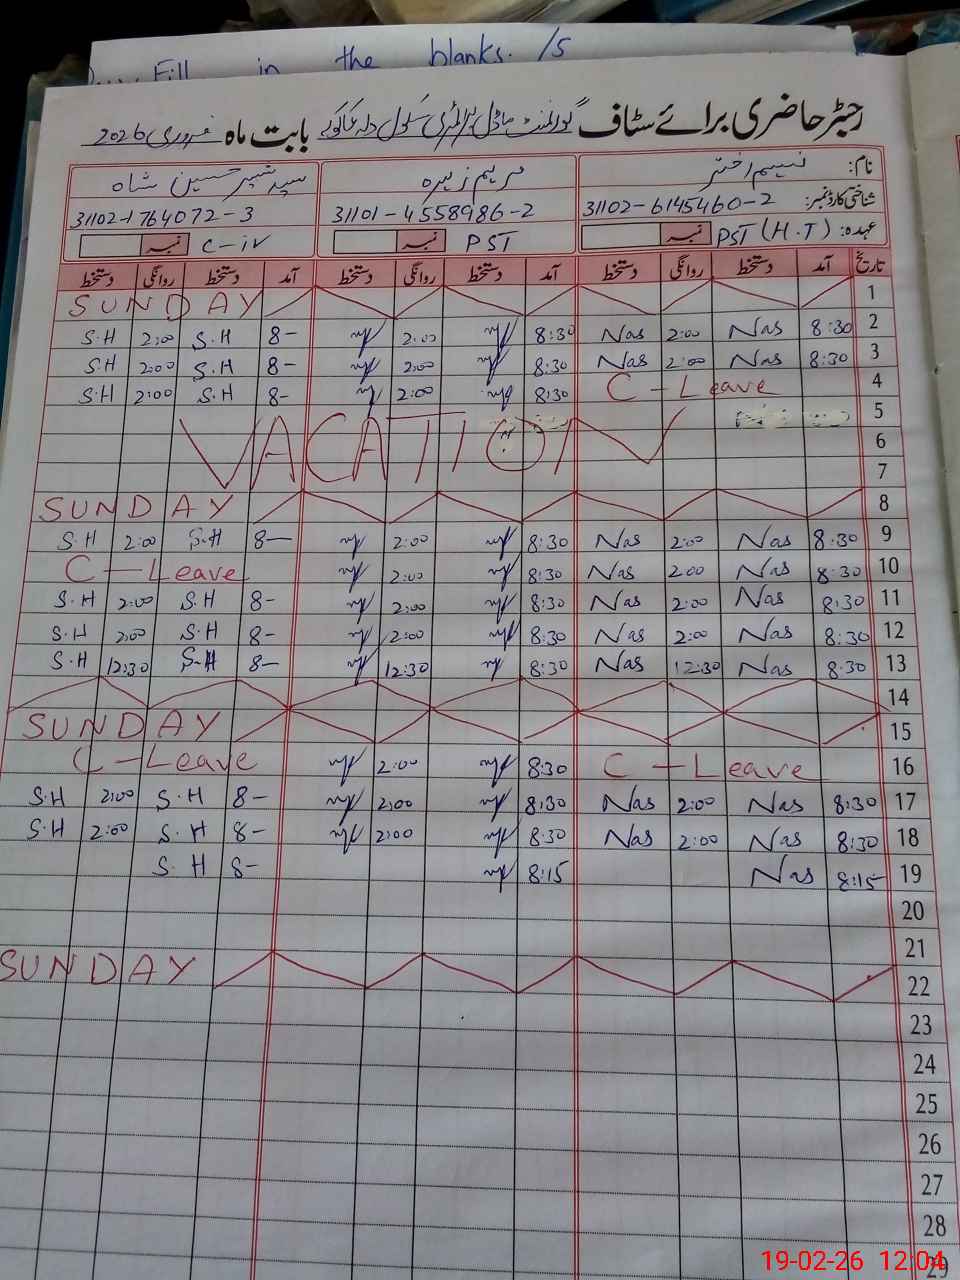 Fill in the blanks. /5
رجسٹر حاضری برائے سٹاف گورنمنٹ ماڈل پرائمری سکول بابت ماہ فروری 2026
نام: نسیم اختر مریم زہرہ سید شبیر حسین شاہ
شناختی کارڈ نمبر: 31102-6145460-2 31101-4558986-2 31102-1764072-3
عہدہ: PST (H.T) نمبر PST نمبر C-iv نمبر
تاریخ آمد دستخط روانگی دستخط آمد دستخط روانگی دستخط آمد دستخط روانگی دستخط
SUNDAY 1
S.H 2:00 S.H 8- 2:00 8:30 Nas 2:00 Nas 8:30 2
S.H 2:00 S.H 8- 2:00 8:30 Nas 2:00 Nas 8:30 3
S.H 2:00 S.H 8- 2:00 8:30 C-Leave 4
5
VACATION 6
7
SUNDAY 8
S.H 2:00 S.H 8- 2:00 8:30 Nas 2:00 Nas 8:30 9
C-Leave 2:00 8:30 Nas 2:00 Nas 8:30 10
S.H 2:00 S.H 8- 2:00 8:30 Nas 2:00 Nas 8:30 11
S.H 2:00 S.H 8- 2:00 8:30 Nas 2:00 Nas 8:30 12
S.H 12:30 S.H 8- 12:30 8:30 Nas 12:30 Nas 8:30 13
14
SUNDAY 15
C-Leave 2:00 8:30 C-Leave 16
S.H 2:00 S.H 8- 2:00 8:30 Nas 2:00 Nas 8:30 17
S.H 2:00 S.H 8- 2:00 8:30 Nas 2:00 Nas 8:30 18
S.H 8- 8:15 Nas 8:15 19
20
21
SUNDAY 22
23
24
25
26
27
28
29
19-02-26 12:04